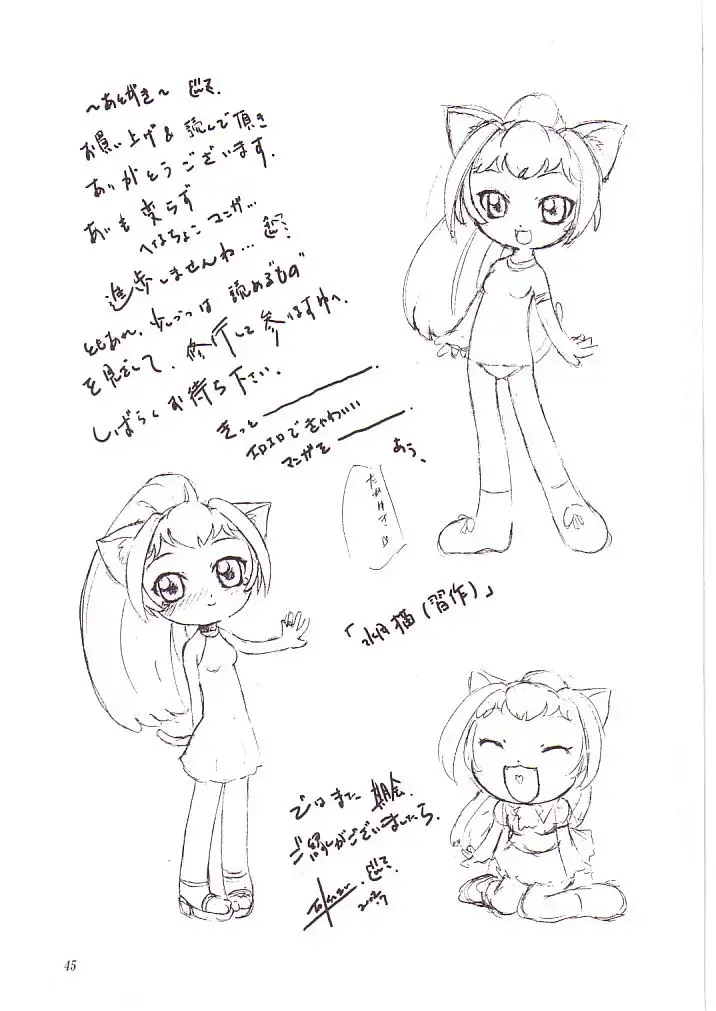 ~あとがき~
お買い上げ & 読んで頂き
ありがとうございます.
あいも変らず
へなちょこマンガ…
進歩しませんね…
ともあれ、少しづつは 読める"もの"
を見ざして、修行して参りますゆへ、
しばらくお待ち下さい.
きっと
エロエロできゃわいい
マンガを
あう、
「水月猫(習作)」
ではまた 機会.
ご縁がございましたら.
2002.7
45